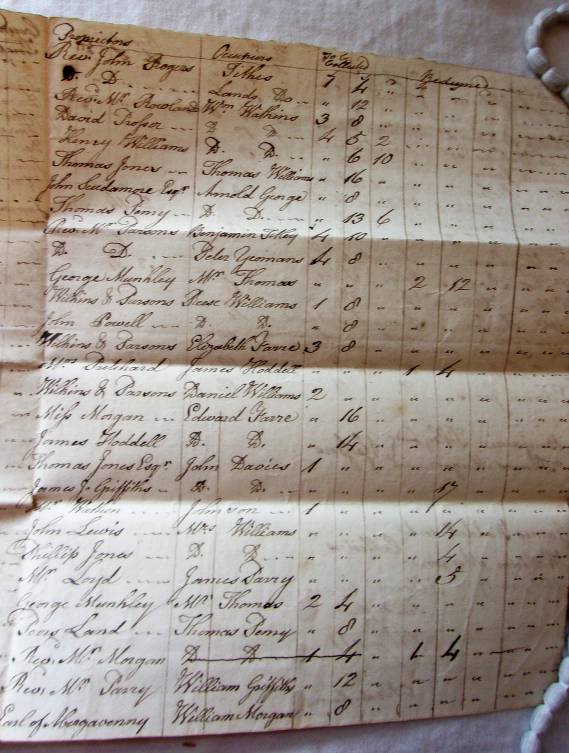 Proprietors Occupiers Redeemed
Revd John Rogers Tithes 7 4 "
D. D. Lands Do " 12 "
Revd Mr Rowland Wm Watkins 3 8 "
David Prosser D D 4 5 2
Henry Williams D. D. " 6 10
Thomas Jones Thomas Williams " 16 "
John Scudamore Esqr Arnold George " 8 "
Thomas Perry D. D. " 13 6
Revd Mr Parsons Benjamin 4 10 "
D. D. Peter Yeomans 4 8 "
George Munkley Mr Thomas " " " 2 12 "
Wilkins & Parsons Reese Williams 1 8 "
John Powell D. D. " 8 "
Wilkins & Parsons Elizabeth Farre 3 8 "
Mrs Prichard James Hoddell " " " 1 4 "
Wilkins & Parsons Daniel Williams 2 " "
Miss Morgan Edward Farre " 16 "
James Hoddell D. D. " 14 "
Thomas Jones Esqr John Davies 1 " "
James J. Griffiths D. D. " " " " 17 "
Johnson 1 " "
John Lewis Mrs Williams " " " " 14 "
Phillip Jones D. D. " " " " 4 "
Mr Loyd James Parry " " " " 5 "
George Munkley Mr Thomas 2 4 "
Poors Land Thomas Perry " 8 "
Revd Mr Morgan D D 1 4 " 1 4 "
Revd Mr Parry William Griffiths " 12 "
Earl of Abergavenny William Morgan " 8 "